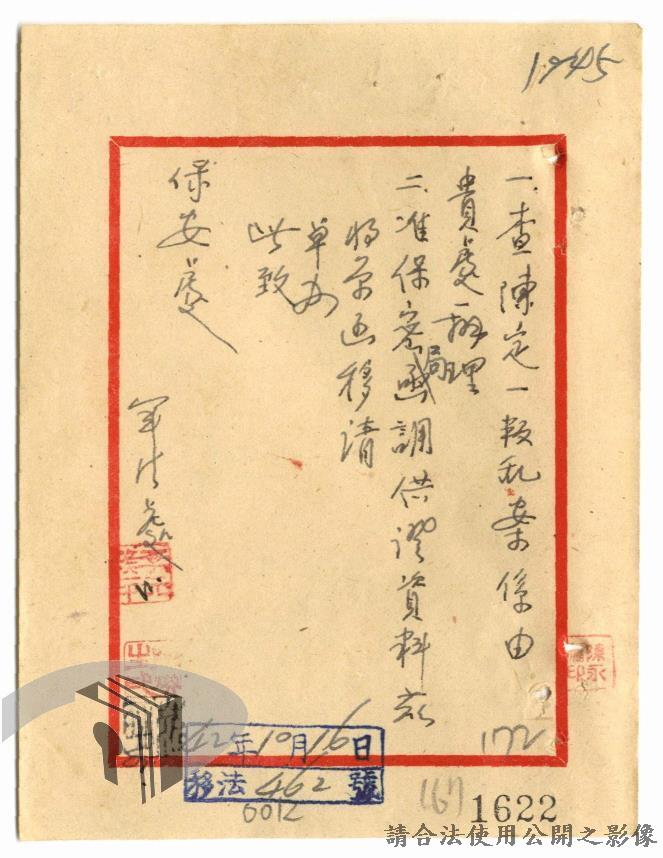 1945
一、查陳定一叛乱案係由
貴處辦理
二、准保密局函調供證資料茲
將原函移請
卓办
此致
保安處
軍法處
陳永
印
42年10月16日
移法462號
6012
172
167
1622
請合法使用公開之影像